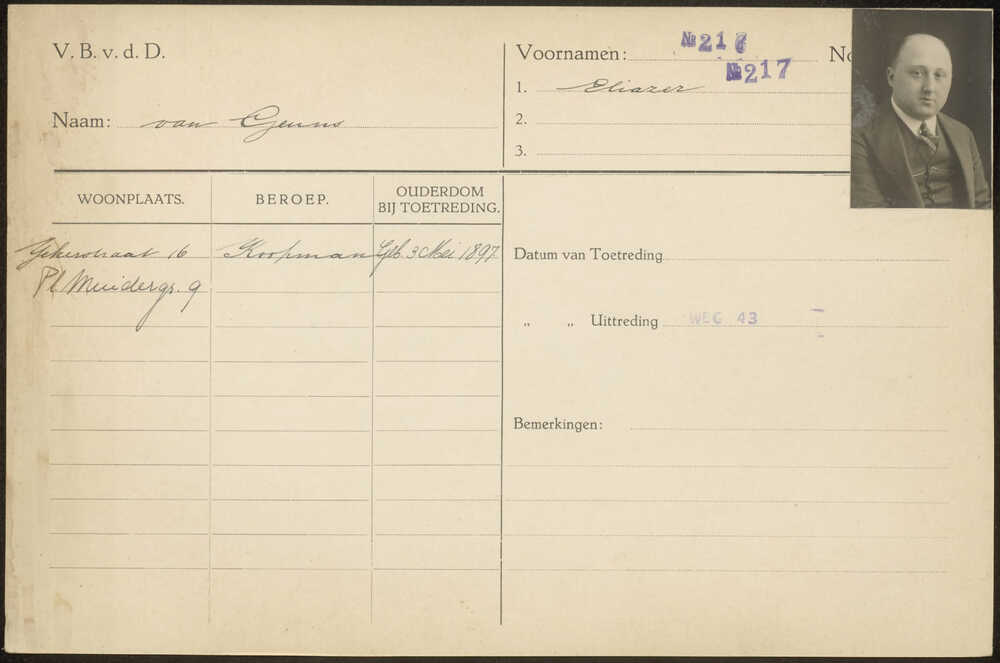 V. B. v. d. D.
Naam: van Geuns
Voornamen:
№ 216
№ 217
No
1. Eliazer
2.
3.
WOONPLAATS.
BEROEP.
OUDERDOM
BIJ TOETREDING.
Yekerstraat 16
Koopman
Geb. 3 Mei 1897
Pl. Muidergr. 9
Datum van Toetreding
„ „ Uittreding WEG 43
Bemerkingen: